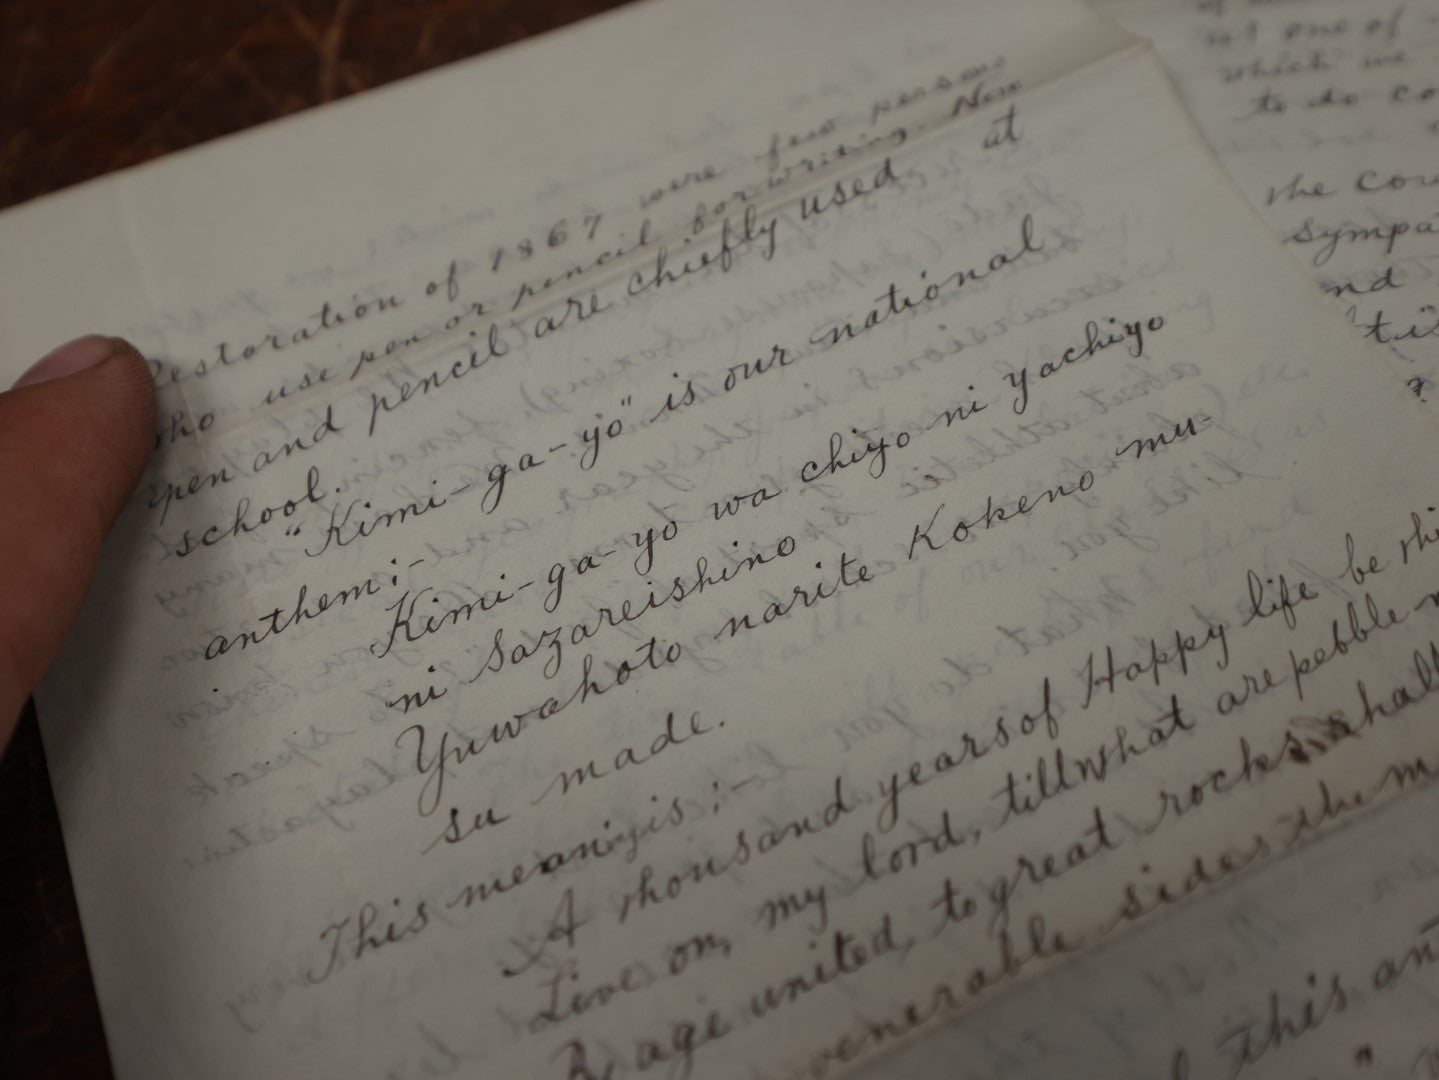 Restoration of 1867 were few persons
who use pen or pencil for writing. Now
pen and pencil are chiefly used at
school.
"Kimi-ga-yo" is our national
anthem:-
Kimi-ga-yo wa chiyo ni yachiyo
ni Sazareishino
Yuwahoto narite Kokeno mu-
su made.
This meanyis:-
A thousand years of Happy life be thi
Live on, my lord, till what are pebble
By age united, to great rocks shall
venerable sides the m
this an
at one of
which we
to do co
the cou
sympa
nd